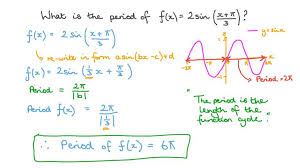 What is the period of f(x) = 2 sin((x+π)/3)?
f(x) = 2 sin((x+π)/3)
re-write in form a sin(bx-c)+d
f(x) = 2 sin(1/3 x + π/3)
Period = 2π/|b|
Period f(x) = 2π/|1/3|
∴ Period of f(x) = 6π
y = sin x
-2π
2π
Period = 2π
"The period is the
length of the
function cycle."